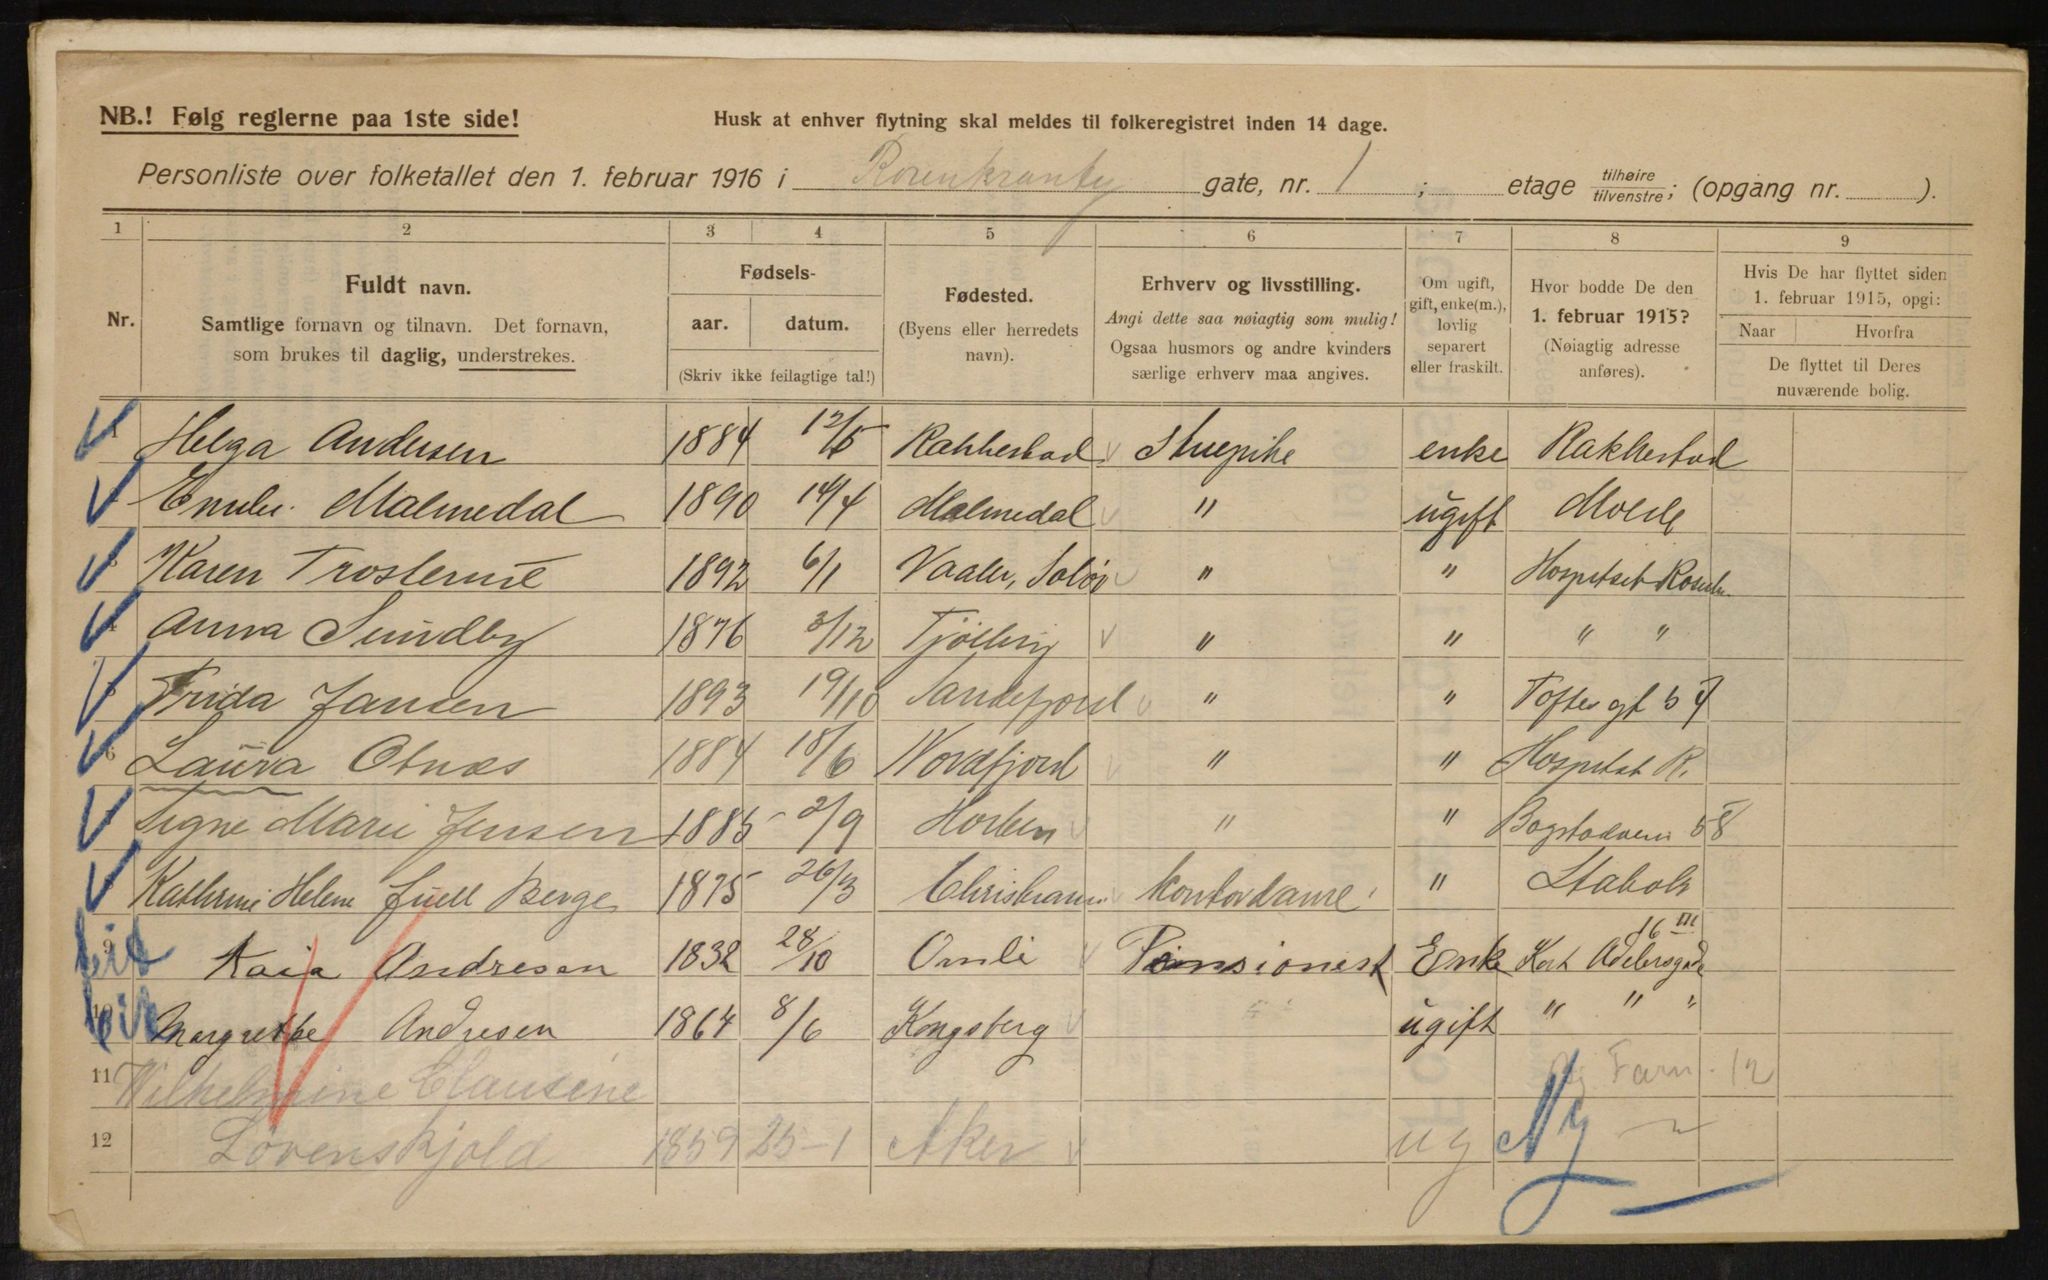 NB.! Følg reglerne paa 1ste side!
Husk at enhver flytning skal meldes til folkeregistret inden 14 dage.
Personliste over folketallet den 1. februar 1916 i Rosenkrantz gate, nr. 1 ; etage tilhøire tilvenstre; (opgang nr. ).
1 2 3 4 5 6 7 8 9
Nr.
Fuldt navn.
Samtlige fornavn og tilnavn. Det fornavn,
som brukes til daglig, understrekes.
Fødsels-
aar. datum.
(Skriv ikke feilagtige tal!)
Fødested.
(Byens eller herredets
navn).
Erhverv og livsstilling.
Angi dette saa nøiagtig som mulig!
Ogsaa husmors og andre kvinders
særlige erhverv maa angives.
Om ugift,
gift, enke(m.),
lovlig
separert
eller fraskilt.
Hvor bodde De den
1. februar 1915?
(Nøiagtig adresse
anføres).
Hvis De har flyttet siden
1. februar 1915, opgi:
Naar Hvorfra
De flyttet til Deres
nuværende bolig.
1 Helga Andersen 1884 12/5 Rakkestad Stuepike enke Rakkestad
Malmedal 1890 14/4 Malmedal " ugift Molde
3 Karen 1892 6/1 Vaaler, Solør " " Hospitset
4 Anna Sundby 1876 3/12 Tjölling " " " "
5 Frida Jansen 1893 19/10 Sandefjord " " Toftes gt 57
6 Laura Otnæs 1884 18/6 Nordfjord " " Hospitset R.
Signe Marie Jensen 1885 2/9 Horten " " 58
Kathrine Helene Juell Berge 1875 26/3 Christiania Kontordame " Stabæk
9 Kaia Andresen 1832 28/10 Omli Pensionist Enke Kort Adelersgade 16 III
10 Margrethe Andresen 1864 8/6 Kongsberg ugift " " "
11 Wilhelmine Clausine Farm. 12
12 Lövenskjold 1859 25-1 Aker ug Ny